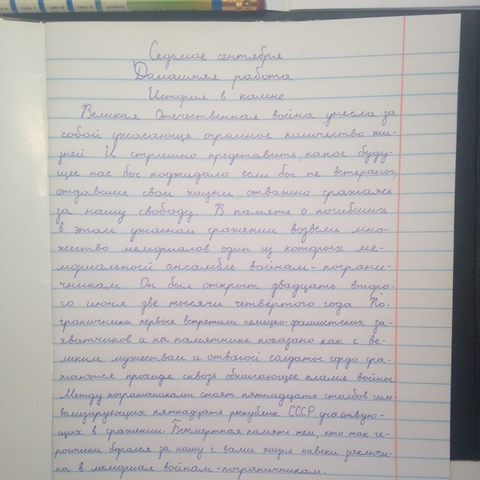 Седьмое сентября
Домашняя работа
История в камне
Великая Отечественная война унесла за
собой ужасающе огромное количество жи-
зней. И страшно представить, какое буду-
щее нас бы поджидало, если бы не ветераны,
отдавшие свои жизни, отважно сражаясь
за нашу свободу. В память о погибших
в этом ужасном сражении возвели мно-
жество мемориалов один из которых ме-
мориальный ансамбль воинам-пограни-
чникам. Он был открыт двадцать второ-
го июня две тысячи четвертого года. По-
граничники первые встретили немецко-фашистских за-
хватчиков и на памятнике показано как с ве-
ликим мужеством и отвагой солдаты гордо сра-
жаются проходя сквозь обжигающее пламя войны.
Между пограничниками стоят пятнадцать столбов сим-
волизирующих пятнадцать республик СССР участвую-
щих в сражении. Бессмертная память тем, кто так ге-
роически боролся за нашу с вами жизнь навеки заключе-
на в мемориал воинам-пограничникам.